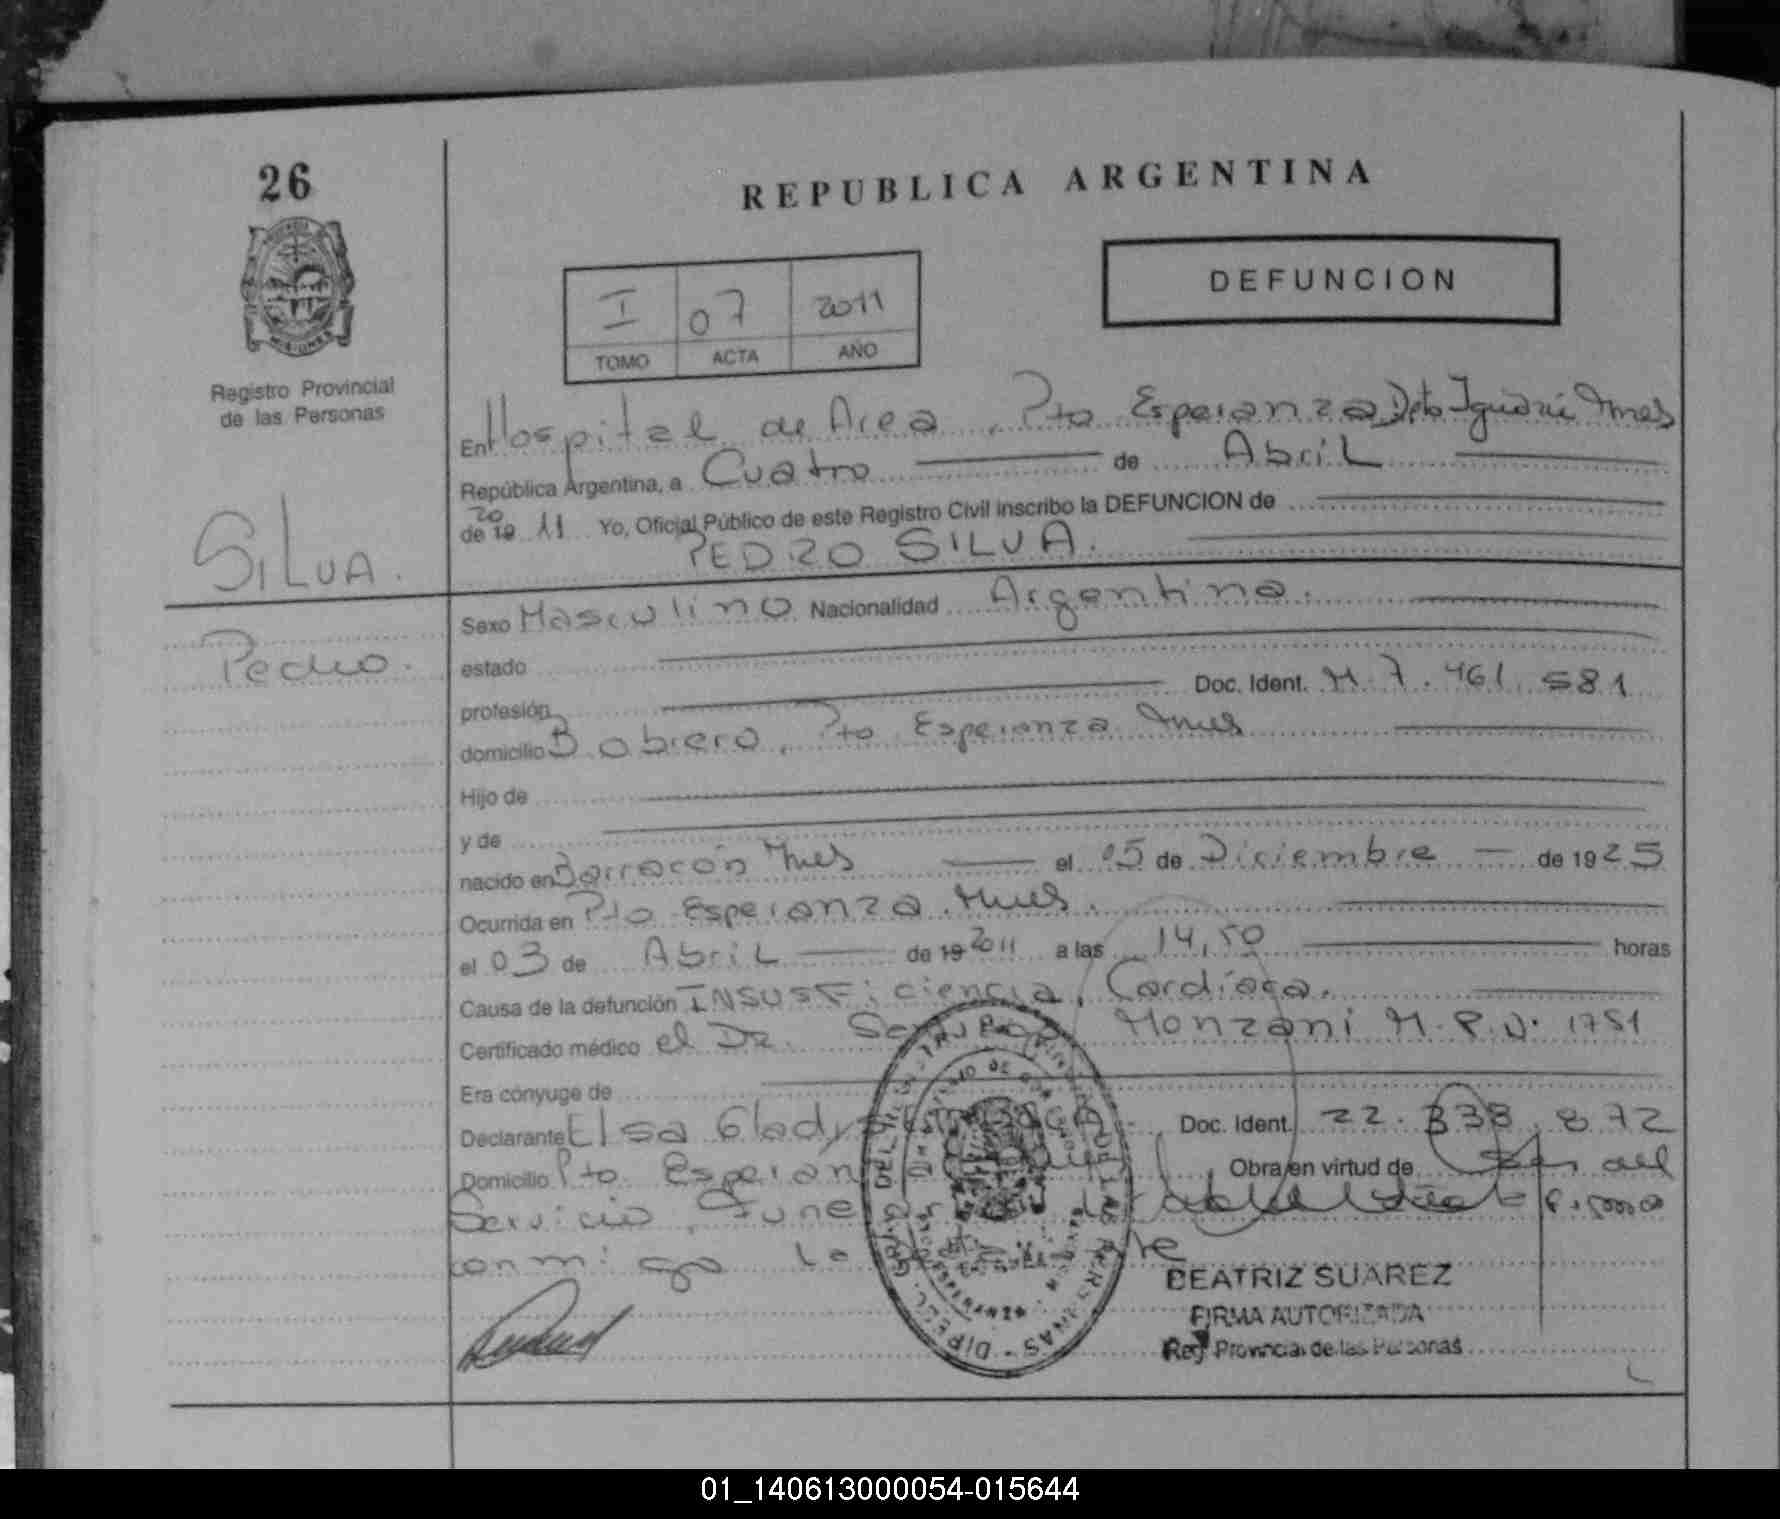 26
REPUBLICA ARGENTINA
DEFUNCION
I 07 2011
TOMO ACTA AÑO
Registro Provincial
de las Personas
En Hospital de Area, Pto Esperanza Dpto Iguazú Mnes
República Argentina, a Cuatro de Abril
de 19 20 11 Yo, Oficial Público de este Registro Civil inscribo la DEFUNCION de
PEDRO SILVA.
SILVA.
Pedro.
Sexo Masculino Nacionalidad Argentina.
estado
profesión Doc. Ident. M 7.461.581
domicilio B obrero, Pto Esperanza Mnes
Hijo de
y de
nacido en Barracón Mnes el 05 de Diciembre de 1925
Ocurrida en Pto Esperanza Mnes.
el 03 de Abril de 19 2011 a las 14,50 horas
Causa de la defunción INSUSFiciencia Cardíaca.
Certificado médico el Dr. Monzani M.P.N. 1751
Era cónyuge de
Declarante Elsa Gladys Doc. Ident. 22.338.872
Domicilio Pto Esperanza Obra en virtud de Ser del
Servicio Funerario Firma
conmigo la
BEATRIZ SUAREZ
FIRMA AUTORIZADA
Reg Provincial de las Personas
01_140613000054-015644